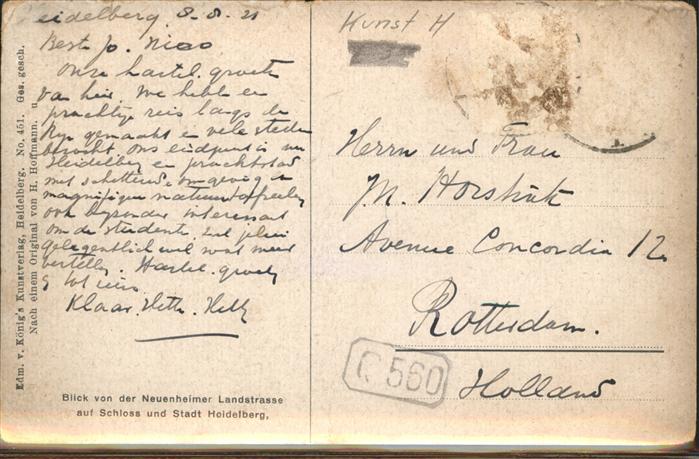 eidelberg 8-8. 21
Beste Jo. Nico
Onze hartel. groete
van hier. We hebben
prachtige reis langs de
Rijn gemaakt en vele steden
bezocht ons eindpunt is nu
Heidelberg een prachtstad
met omgeving
ook byzonder interessant
om de studenten
gelegentlich wel wat meer
vertellen. Hartel. groeten
Klaas.
Edm. v. König's Kunstverlag, Heidelberg, No. 451. Ges. gesch.
Nach einem Original von H. Hoffmann. u.
Blick von der Neuenheimer Landstrasse
auf Schloss und Stadt Heidelberg,
Kunst H
Herrn und Frau
Avenue Concordia 12
Rotterdam.
Holland
C 560